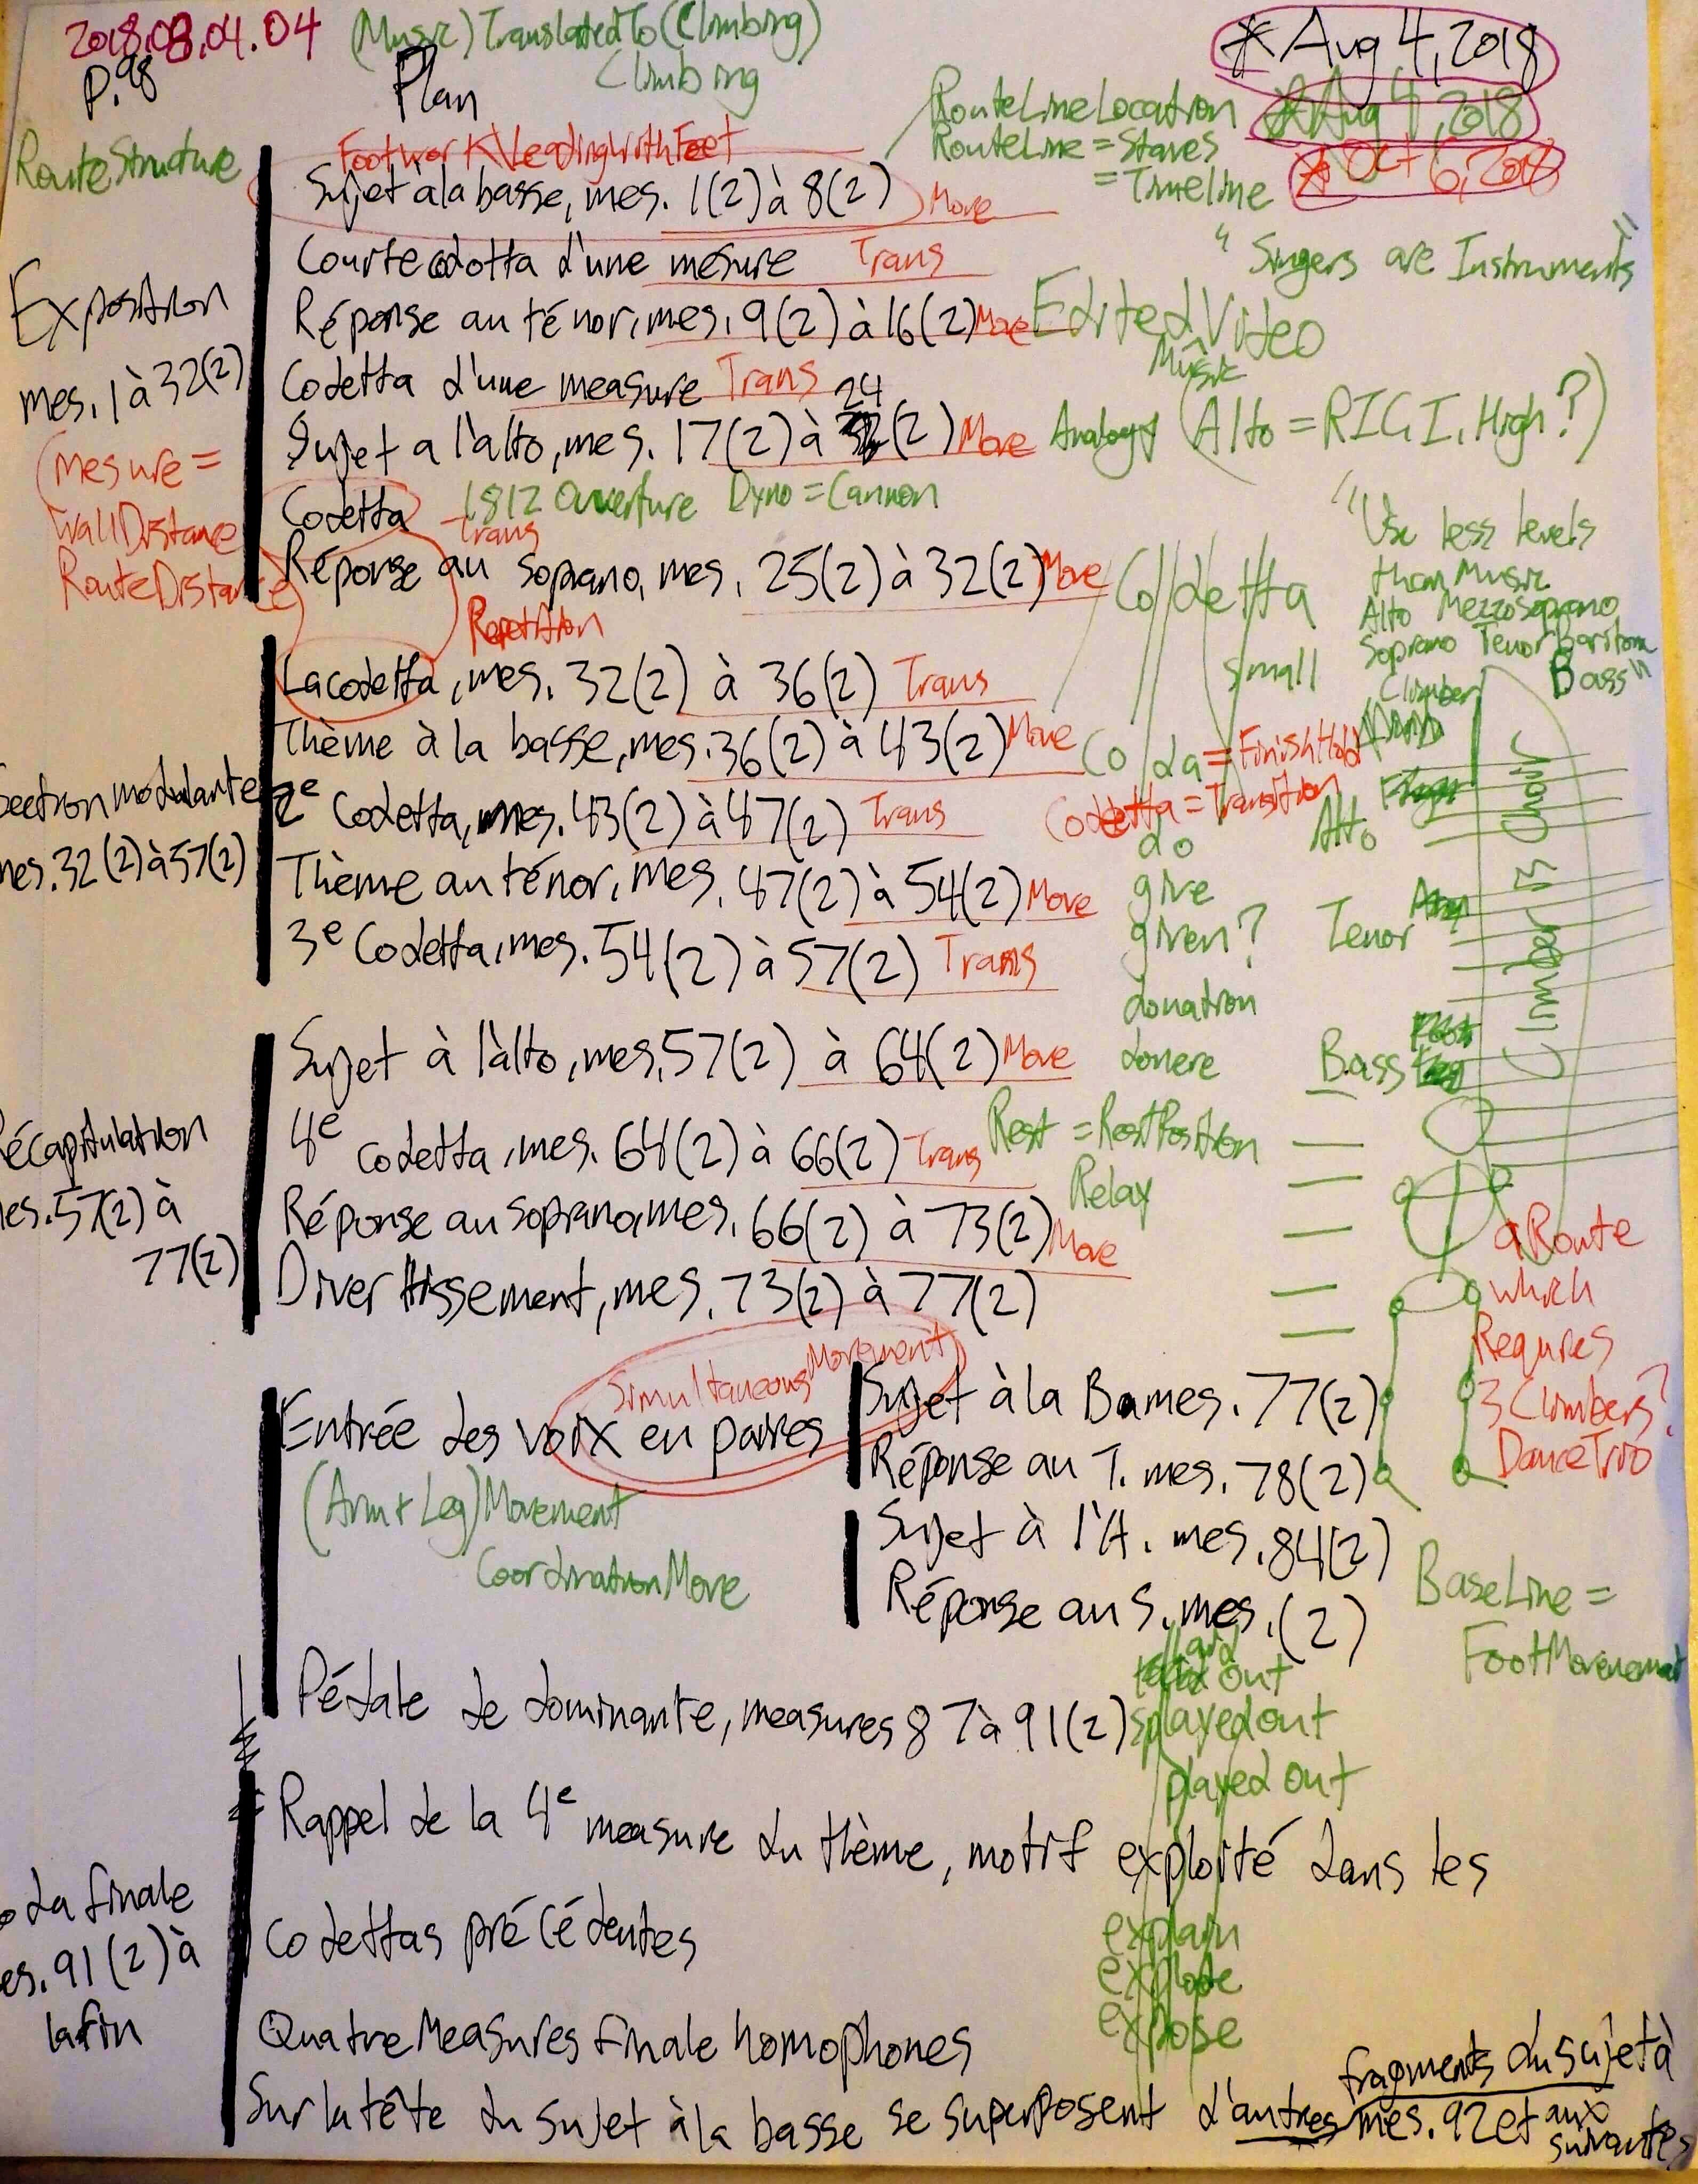 2018.08.04.04
(Music)TranslatedTo(Climbing)
Climbing
*Aug 4, 2018
P.98
Plan
RouteLineLocation
*Aug 4, 2018
RouteLine = Staves
= Timeline
*Oct 6, 2018
RouteStructure
Footwork\LeadingWithFeet
Sujet à la basse, mes. 1(2) à 8(2) Move
Courte codotta d'une mesure Trans
" Singers are Instruments "
Exposition
mes. 1 à 32(2)
Réponse au ténor, mes. 9(2) à 16(2) Move
EditedVideo
Music
Codetta d'une measure Trans
24
Sujet a l'alto, mes. 17(2) à (2) Move
Analogy (Alto = RIGI, High?)
(Mesure =
WallDistance
RouteDistance)
Codetta
1812 Ouverture Dyno = Cannon
Trans
Réponse au soprano, mes. 25(2) à 32(2) Move
Repetition
"Use less levels
than Music
Alto MezzoSoprano
Soprano Tenor Baritone
Bass"
Co/detta
small
La codetta, mes. 32(2) à 36(2) Trans
Thème à la basse, mes. 36(2) à 43(2) Move
Co/da = FinishHold
Codetta = Transition
Climber
Section modulante
mes. 32(2) à 57(2)
2e Codetta, mes. 43(2) à 47(2) Trans
Thème au ténor, mes. 47(2) à 54(2) Move
3e Codetta, mes. 54(2) à 57(2) Trans
do
give
given?
donation
donere
Alto
Tenor
Bass
Climber is Choir
Récapitulation
mes. 57(2) à
77(2)
Sujet à l'alto, mes. 57(2) à 64(2) Move
4e codetta, mes. 64(2) à 66(2) Trans
Rest = RestPosition
Relay
Réponse au soprano, mes. 66(2) à 73(2) Move
Divertissement, mes. 73(2) à 77(2)
aRoute
which
Requires
3Climbers?
DanceTrio
SimultaneousMovement
Entrée des voix en paires
(Arm + Leg)Movement
CoordinationMove
Sujet à la Bames. 77(2)
Réponse au T. mes. 78(2)
Sujet à l'A. mes. 84(2)
Réponse au S. mes. (2)
BaseLine =
FootMovement
Pédale de dominante, measures 87 à 91(2)
laid out
splayed out
played out
Rappel de la 4e measure du thème, motif exploité dans les
Codettas précédentes
explain
explode
expose
La finale
mes. 91(2) à
la fin
Quatre Measures finale homophones
Sur la tête du sujet à la basse se superposent d'autres fragments du sujet à
mes. 92 et aux
suivantes